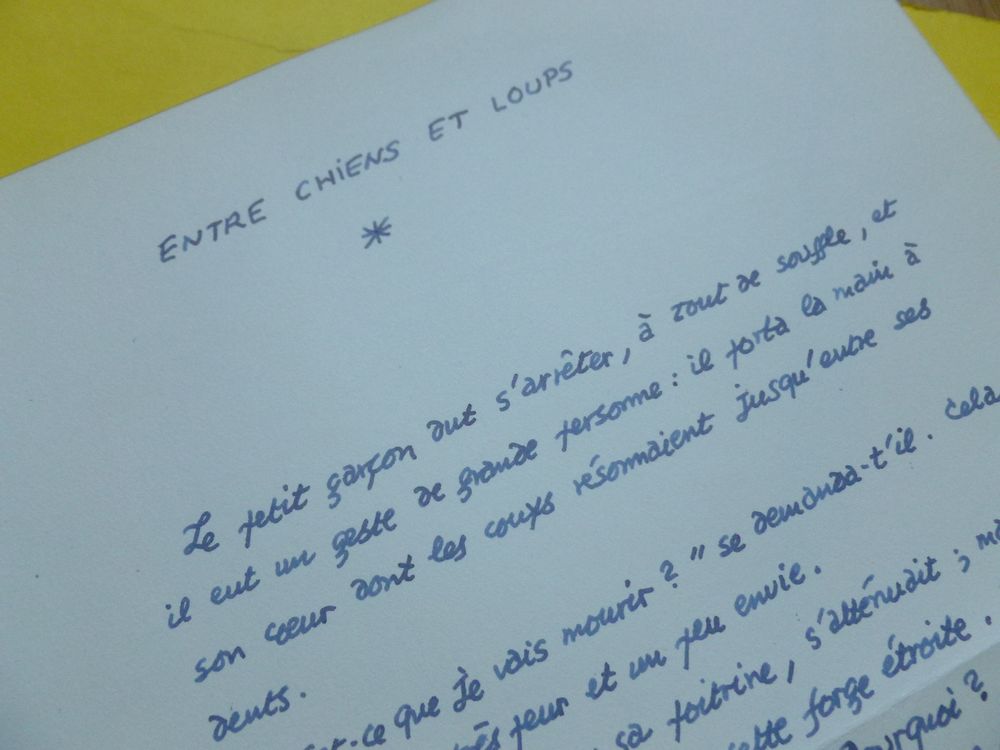 ENTRE CHIENS ET LOUPS
*
Le petit garçon dut s'arrêter, à bout de souffle, et
il eut un geste de grande personne : il porta la main à
son cœur dont les coups résonnaient jusqu'entre ses
dents.
-ce que je vais mourir ? " se demanda-t'il. Cela
peur et un peu envie.
sa poitrine, s'atténuait ;
cette forge étroite.
ourquoi ?